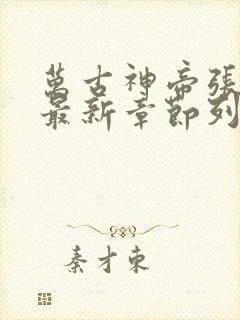 萬古神帝張
最新章節列
秦才東